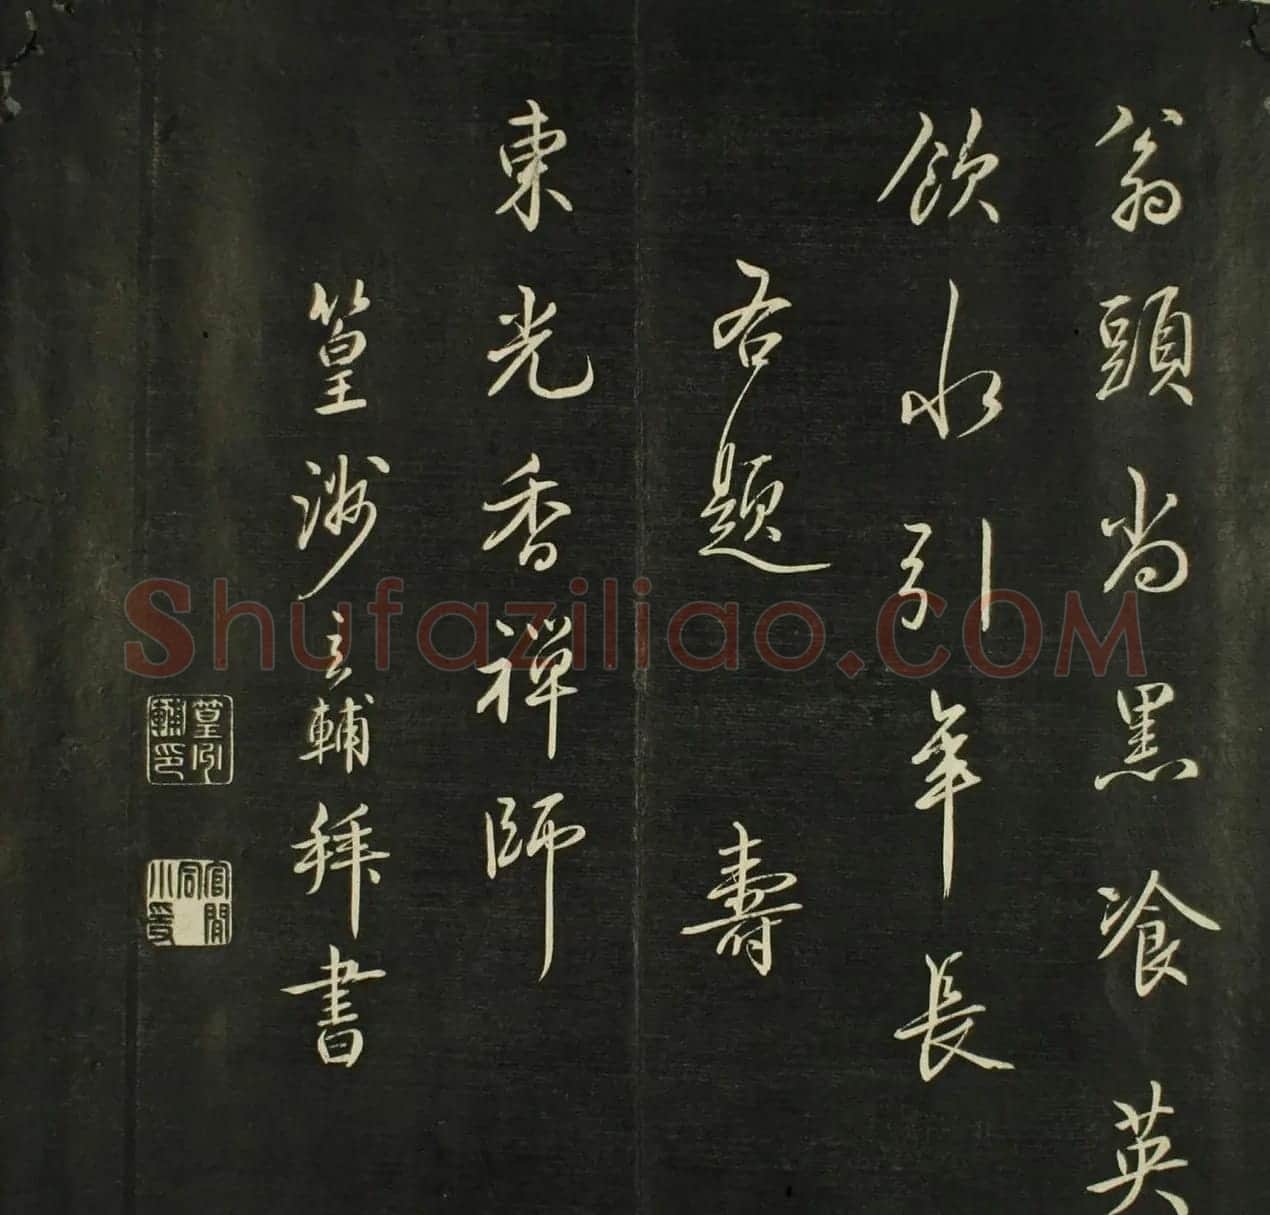 翁頭尚黑飡英
飲水引年長
右題 壽
東光香禪師
篁洲玄輔拜書
篁洲
輔印
官閒
何
小愛
Shufaziliao.COM